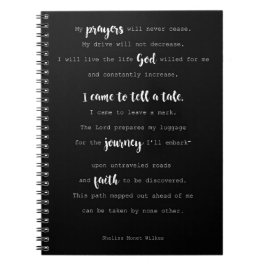 My prayers will never cease.
My drive will not decrease.
I will live the life God willed for me
and constantly increase.
I came to tell a tale.
I came to leave a mark.
The Lord prepares my luggage
for the journey I'll embark
upon untraveled roads
and faith to be discovered.
This path mapped out ahead of me
can be taken by none other.
Shelisa Monet Wilkes